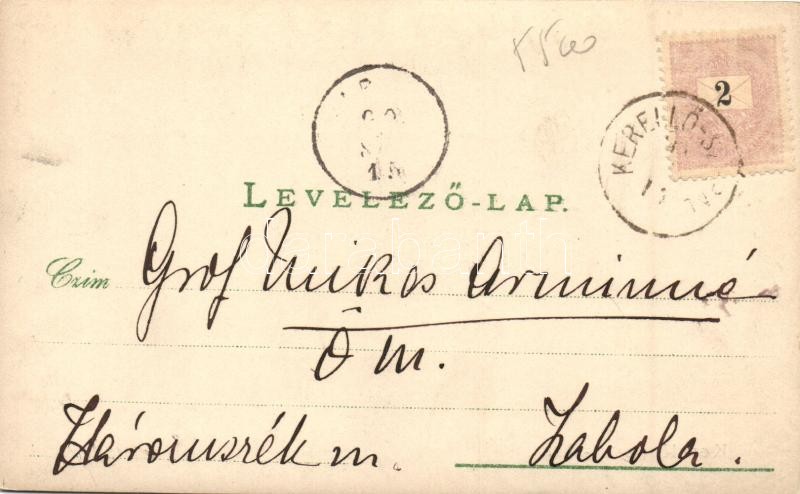 5500
2
KERELLŐ-S
15
LEVELEZŐ-LAP.
Czim Gróf Mikos Arminné
Ő m.
Háromszék m. Zabola.